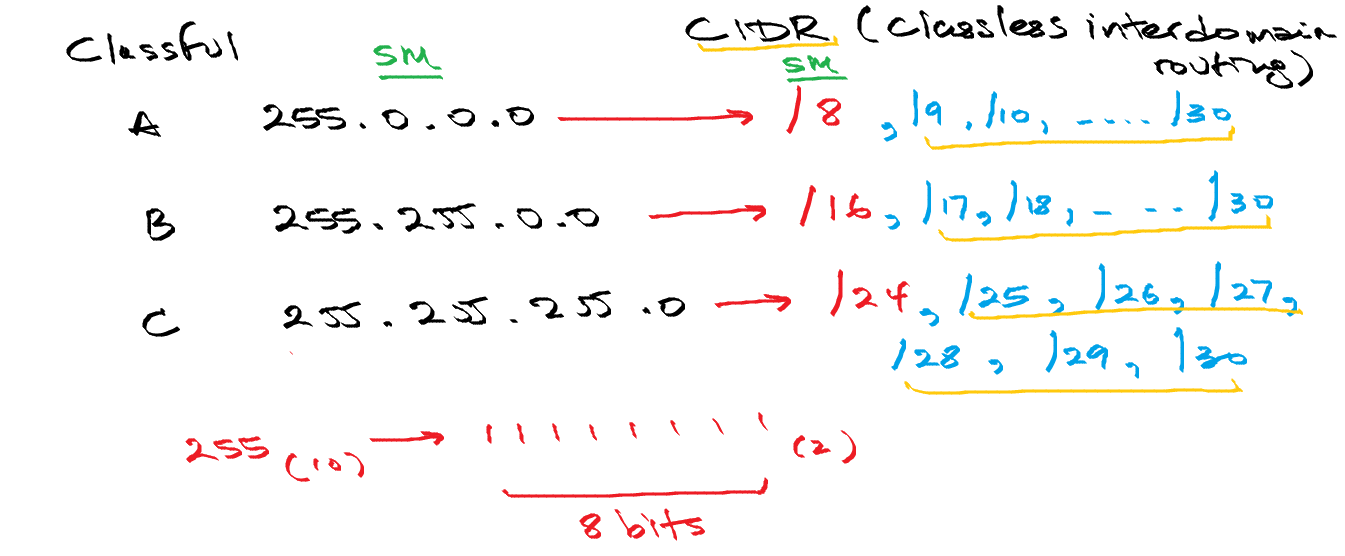 Classful SM CIDR (Classless interdomain routing)
SM
A 255.0.0.0 → /8, /9, /10, .... /30
B 255.255.0.0 → /16, /17, /18, - - .. /30
C 255.255.255.0 → /24, /25, /26, /27,
/28, /29, /30
255 (10) → 11111111 (2)
8 bits